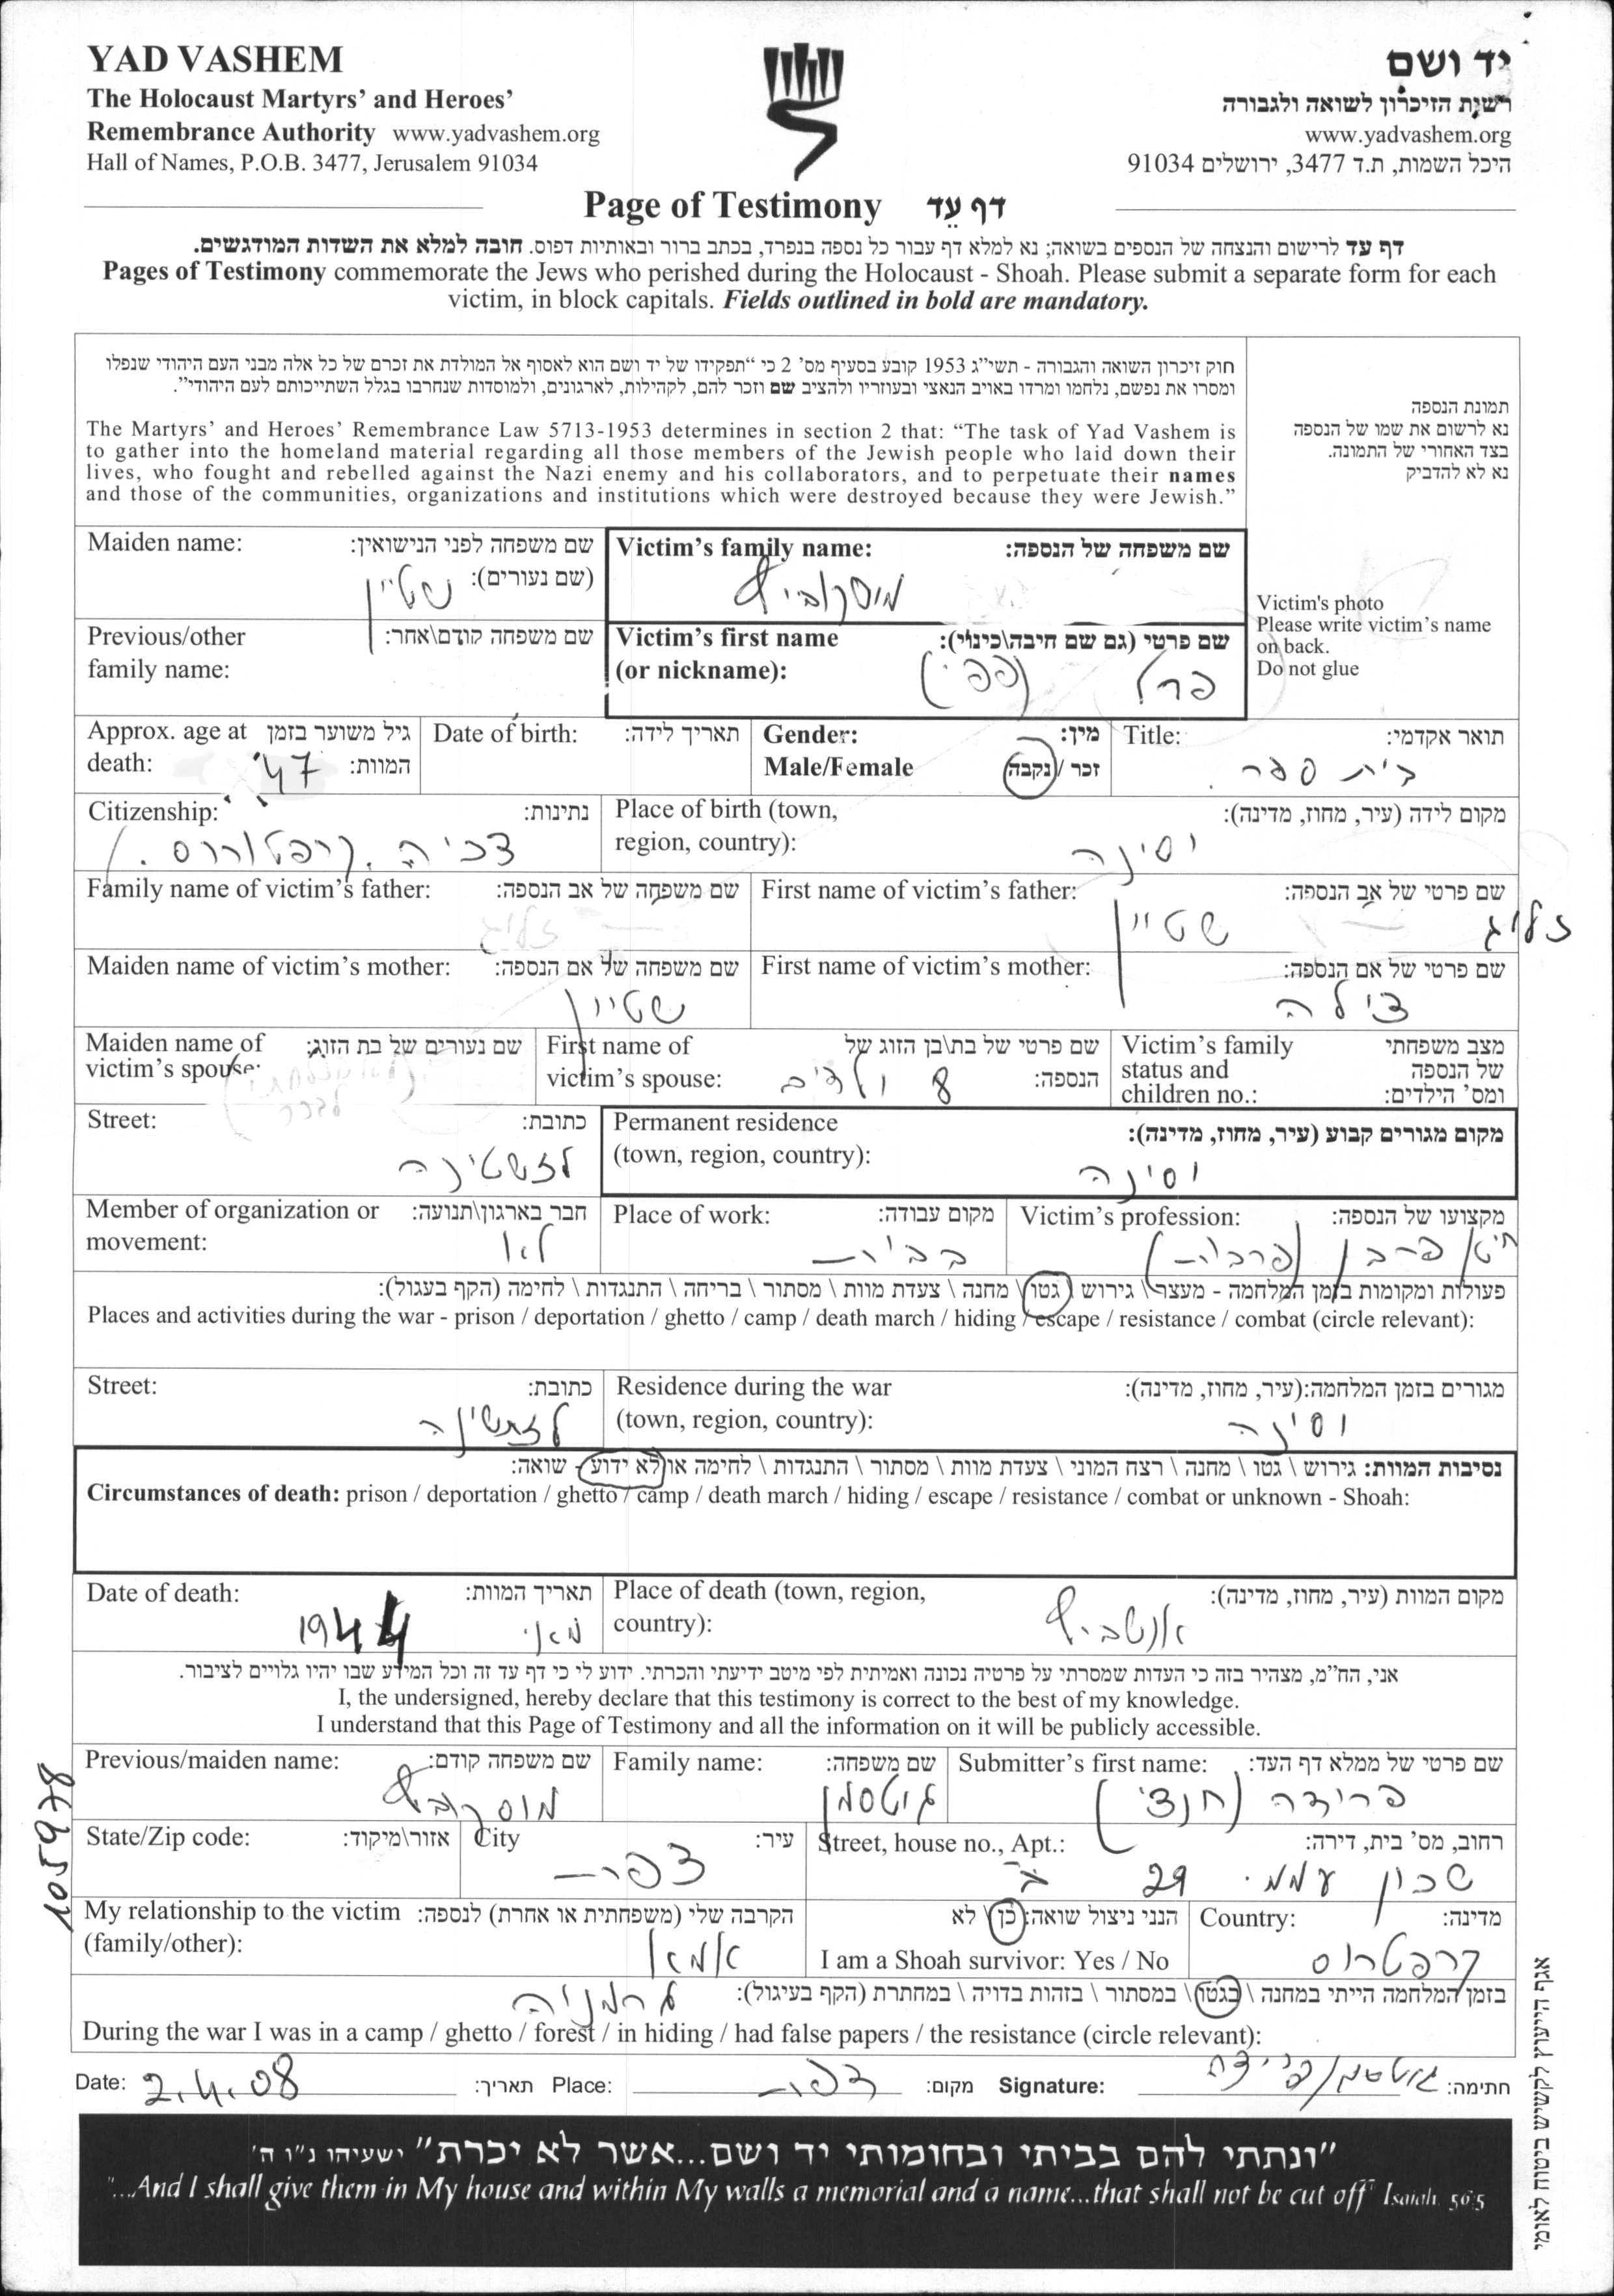 YAD VASHEM
The Holocaust Martyrs’ and Heroes’
Remembrance Authority www.yadvashem.org
Hall of Names, P.O.B. 3477, Jerusalem 91034
יד ושם
רשות הזיכרון לשואה ולגבורה
www.yadvashem.org
היכל השמות, ת.ד 3477, ירושלים 91034
Page of Testimony דף עֵד
דף עד לרישום והנצחה של הנספים בשואה; נא למלא דף עבור כל נספה בנפרד, בכתב ברור ובאותיות דפוס. חובה למלא את השדות המודגשים.
Pages of Testimony commemorate the Jews who perished during the Holocaust - Shoah. Please submit a separate form for each
victim, in block capitals. Fields outlined in bold are mandatory.
חוק זיכרון השואה והגבורה - תשי״ג 1953 קובע בסעיף מס׳ 2 כי “תפקידו של יד ושם הוא לאסוף אל המולדת את זכרם של כל אלה מבני העם היהודי שנפלו
ומסרו את נפשם, נלחמו ומרדו באויב הנאצי ובעוזריו ולהציב שם וזכר להם, לקהילות, לארגונים, ולמוסדות שנחרבו בגלל השתייכותם לעם היהודי”.
The Martyrs’ and Heroes’ Remembrance Law 5713-1953 determines in section 2 that: “The task of Yad Vashem is
to gather into the homeland material regarding all those members of the Jewish people who laid down their
lives, who fought and rebelled against the Nazi enemy and his collaborators, and to perpetuate their names
and those of the communities, organizations and institutions which were destroyed because they were Jewish.”
תמונת הנספה
נא לרשום את שמו של הנספה
בצד האחורי של התמונה.
נא לא להדביק
Victim's photo
Please write victim’s name
on back.
Do not glue
Victim’s family name: שם משפחה של הנספה:
מוסקוביץ
Maiden name: שם משפחה לפני הנישואין:
(שם נעורים): שטיין
Victim’s first name שם פרטי (גם שם חיבה\כינוי):
(or nickname): פרל (פפי)
Previous/other שם משפחה קודם\אחר:
family name:
Title: תואר אקדמי:
בית ספר
Gender: מין:
Male/Female זכר / נקבה
Date of birth: תאריך לידה:
Approx. age at גיל משוער בזמן
death: המוות: 47
Place of birth (town, מקום לידה (עיר, מחוז, מדינה):
region, country): וסינה
Citizenship: נתינות:
צכיה. קרפטורוס.
First name of victim’s father: שם פרטי של אב הנספה:
זליג שטיין
Family name of victim’s father: שם משפחה של אב הנספה:
First name of victim’s mother: שם פרטי של אם הנספה:
צילה
Maiden name of victim’s mother: שם משפחה של אם הנספה:
שטיין
Victim’s family מצב משפחתי
status and של הנספה
children no.: ומס׳ הילדים:
First name of שם פרטי של בת\בן הזוג של
victim’s spouse: הנספה: 8 ולדים
Maiden name of שם נעורים של בת הזוג:
victim’s spouse:
Permanent residence מקום מגורים קבוע (עיר, מחוז, מדינה):
(town, region, country): וסינה
Street: כתובת:
Victim’s profession: מקצועו של הנספה:
Place of work: מקום עבודה:
בבית
Member of organization or חבר בארגון\תנועה:
movement: לא
פעולות ומקומות בזמן המלחמה - מעצר \ גירוש \ גטו \ מחנה \ צעדת מוות \ מסתור \ בריחה \ התנגדות \ לחימה (הקף בעגול):
Places and activities during the war - prison / deportation / ghetto / camp / death march / hiding / escape / resistance / combat (circle relevant):
Residence during the war מגורים בזמן המלחמה:(עיר, מחוז, מדינה):
(town, region, country): וסינה
Street: כתובת:
נסיבות המוות: גירוש \ גטו \ מחנה \ רצח המוני \ צעדת מוות \ מסתור \ התנגדות \ לחימה או לא ידוע - שואה:
Circumstances of death: prison / deportation / ghetto / camp / death march / hiding / escape / resistance / combat or unknown - Shoah:
Place of death (town, region, מקום המוות (עיר, מחוז, מדינה):
country): אושביץ
Date of death: תאריך המוות:
מאי 1944
אני, הח״מ, מצהיר בזה כי העדות שמסרתי על פרטיה נכונה ואמיתית לפי מיטב ידיעתי והכרתי. ידוע לי כי דף עד זה וכל המידע שבו יהיו גלויים לציבור.
I, the undersigned, hereby declare that this testimony is correct to the best of my knowledge.
I understand that this Page of Testimony and all the information on it will be publicly accessible.
Submitter’s first name: שם פרטי של ממלא דף העד:
פרידה (חנצי)
Family name: שם משפחה:
גוטסמן
Previous/maiden name: שם משפחה קודם:
מוסקוביץ
Street, house no., Apt.: רחוב, מס׳ בית, דירה:
שכון עממי 29 ב
City עיר:
צפת
State/Zip code: אזור\מיקוד:
Country: מדינה:
קרפטרוס
הנני ניצול שואה: כן \ לא
I am a Shoah survivor: Yes / No
My relationship to the victim הקרבה שלי (משפחתית או אחרת) לנספה:
(family/other): אמא
בזמן המלחמה הייתי במחנה \ בגטו \ במסתור \ בזהות בדויה \ במחתרת (הקף בעיגול): גרמניה
During the war I was in a camp / ghetto / forest / in hiding / had false papers / the resistance (circle relevant):
Date: 2.4.08 תאריך: Place: צפת מקום: Signature: גוטסמן פרידה חתימה:
1059778
אגף הייעוץ לקשיש ביטוח לאומי
”ונתתי להם בביתי ובחומותי יד ושם...אשר לא יכרת” ישעיהו נ״ו ה׳
"...And I shall give them in My house and within My walls a memorial and a name...that shall not be cut off" Isaiah 56:5